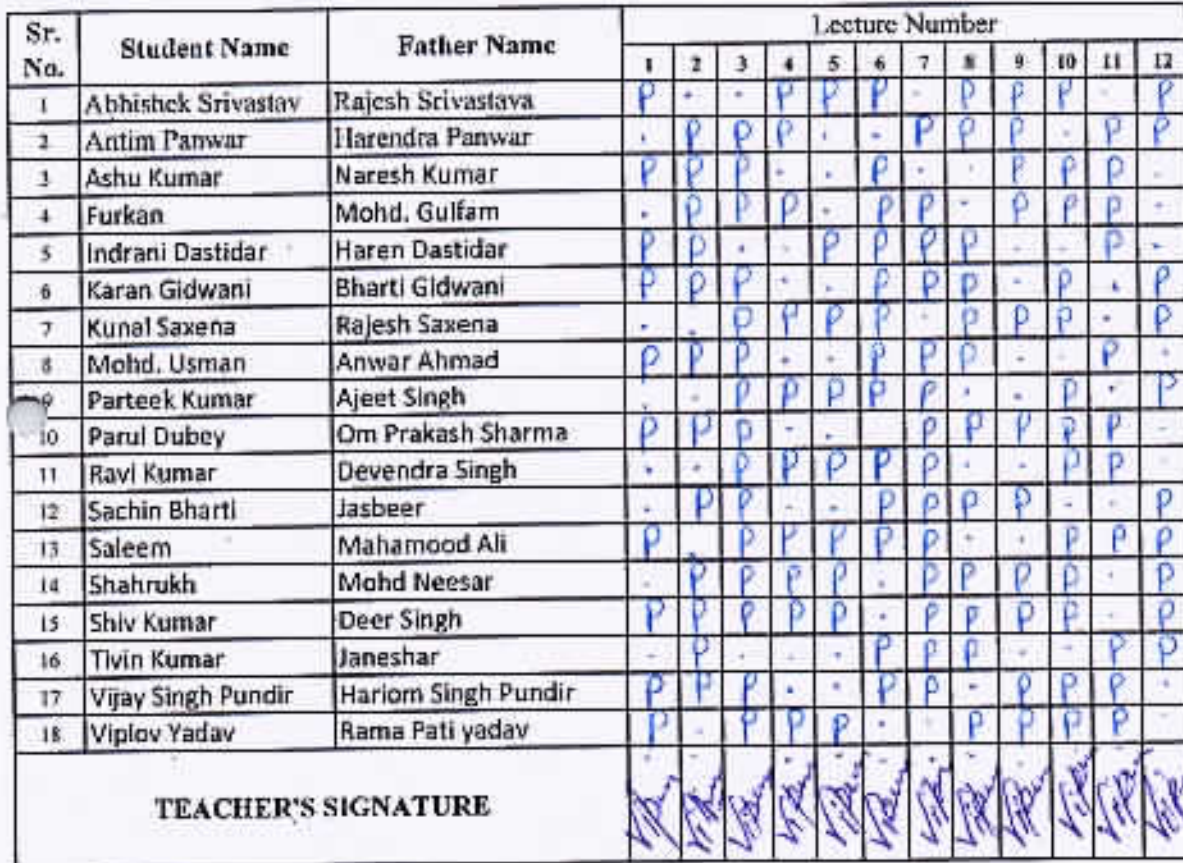 Sr. No. Student Name Father Name Lecture Number
1 2 3 4 5 6 7 8 9 10 11 12
1 Abhishek Srivastav Rajesh Srivastava P . . P P P . P P P . P
2 Antim Panwar Harendra Panwar . P P P . . P P P . P P
3 Ashu Kumar Naresh Kumar P P P . . P . . P P P .
4 Furkan Mohd. Gulfam . P P P . P P . P P P .
5 Indrani Dastidar Haren Dastidar P P . . P P P P . . P .
6 Karan Gidwani Bharti Gidwani P P P . . P P P . P . P
7 Kunal Saxena Rajesh Saxena . . P P P P . P P P . P
8 Mohd. Usman Anwar Ahmad P P P . . P P P . . P .
9 Parteek Kumar Ajeet Singh . . P P P P P . . P . P
10 Parul Dubey Om Prakash Sharma P P P . . P P P P P .
11 Ravi Kumar Devendra Singh . . P P P P P . . P P .
12 Sachin Bharti Jasbeer . P P . . P P P P . . P
13 Saleem Mahamood Ali P . P P P P P . . P P P
14 Shahrukh Mohd Neesar . P P P P . P P P P . P
15 Shiv Kumar Deer Singh P P P P P . P P P P . P
16 Tivin Kumar Janeshar . P . . . P P P . . P P
17 Vijay Singh Pundir Hariom Singh Pundir P P P . . P P . P P P .
18 Viplov Yadav Rama Pati yadav P . P P P . . P P P P .
TEACHER'S SIGNATURE